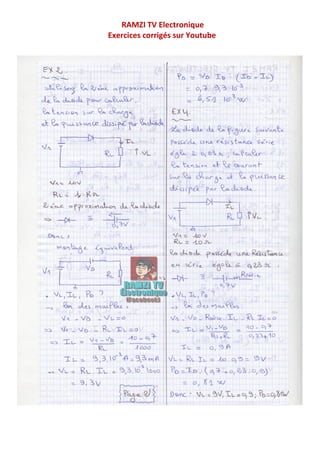 RAMZI TV Electronique
Exercices corrigés sur Youtube
EX2
utiliser la 2ième approximation
de la diode pour calculer
la tension sur la charge
et la puissance dissipé par la diode
IL
Vs
RL
VL
Vs = 10V
RL = 1 KΩ
2ième approximation de la diode
=> ≡
0,7V
Donc :
montage équivalent
Vs
VD
RL
• VL, IL, PD ?
→ loi des mailles :
Vs - VD - VL = 0
=> Vs - VD - RL IL = 0
=> IL = Vs - VD / RL = 10 - 0,7 / 1000
IL = 9,3.10⁻³ A = 9,3 mA
→ VL = RL IL = 9,3.10⁻³ 1000
= 9,3 V
PD = VD ID (ID = IL)
= 0,7 9,3 10⁻³
= 6,51 10⁻³ W
EX4
La diode de la figure suivante
possède une résistance série
égale à 0,23Ω, calculer
la tension et le courant
sur la charge et la puissance
dissipé par la diode
IL
Vs
RL
VL
Vs = 10V
RL = 10Ω
la diode possède une Résistance
en série égale à 0,23Ω
0,7V
• VL, IL, PD ?
→ loi des mailles :
=> IL = Vs - VD
IL = 0,9 A
VL = RL IL = 10 0,9 = 9V
= 0,81 W
Donc : VL = 9V, IL = 0,9, PD = 0,81W
RAMZI TV
Electronique
(Facebook)
{Page 2}